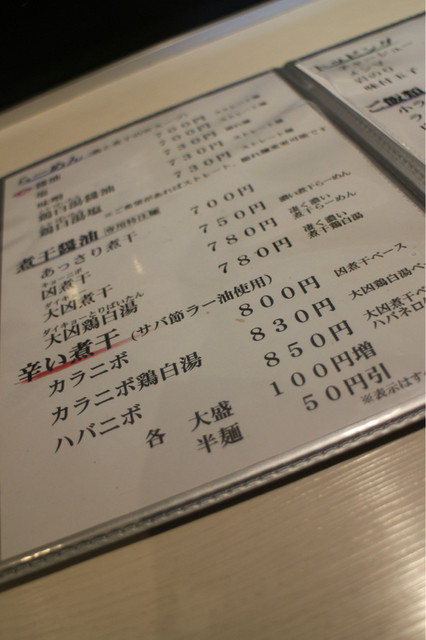 らーめん
醤油 700円 ストレート麺
塩 700円
鶏白湯醤油 730円
鶏白湯塩 730円 ストレート麺
煮干醤油
あっさり煮干 700円
凶煮干 750円 濃い煮干らーめん
大凶煮干 780円 凄く濃い煮干らーめん
大凶鶏白湯 780円 凄く濃い煮干鶏白湯
辛い煮干 (サバ節ラー油使用)
カラニボ 800円 凶煮干ベース
カラニボ鶏白湯 830円 大凶鶏白湯ベ
ハバニボ 850円 大凶煮干ベ
ハバネロ
各 大盛 100円増
半麺 50円引
※表示はす
トッピング
チャーシュー
メンマ
岩のり
味付玉子
ご飯類